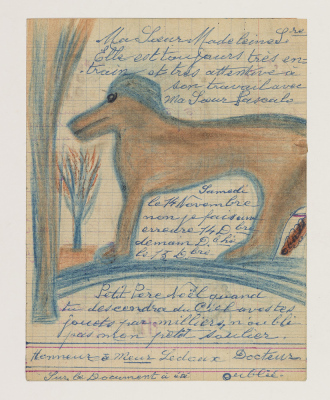 Ma Sœur Madeleine Sre
Elle est toujours très en-
train et très attentive à
son travail avec
Ma Sœur
Samedi
le 14 Novembre
non je fais une
erreure 14 Dbre
demain Dche
le 15 Dbre
Petit Père Noël quand
tu descendra du Ciel avec tes
jouets par milliers n'oublie
pas mon petit soulier.
Honneur à Meur Ledoux Docteur
Sur ce Document à sa oublié.